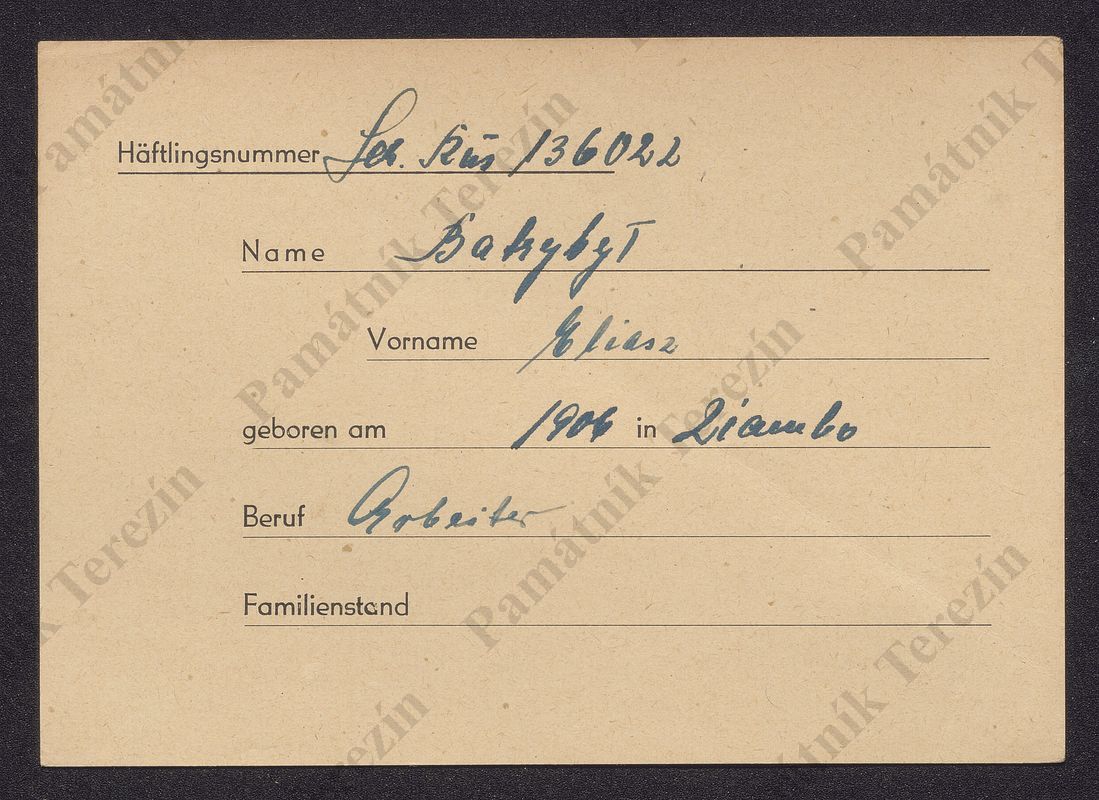 Häftlingsnummer Sch. Rus 136022
Name
Vorname Eliasz
geboren am 1906 in
Beruf Arbeiter
Familienstand
Památník Terezín